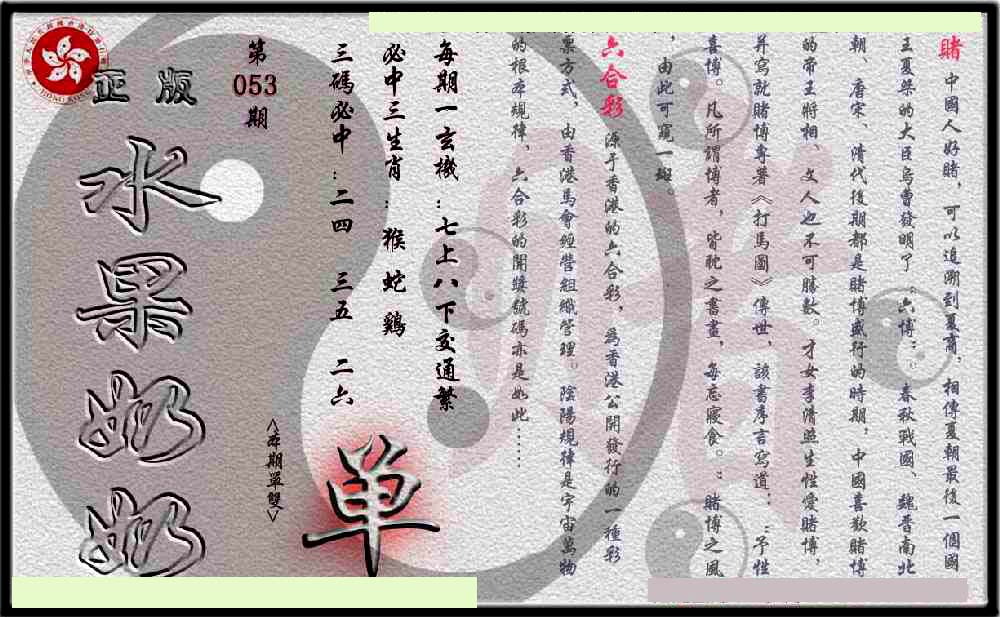 賭 中國人好賭，可以追溯到夏商．相傳夏朝最後一個國
王夏桀的大臣烏曹發明了『六博』．春秋戰國、魏晉南北
朝、唐宋、清代後期都是賭博盛行的時期，中國喜歡賭博
的帝王將相、文人也不可勝數。才女李清照生性愛賭博，
并寫就賭博專著《打馬圖》傳世，該書序言寫道：：予性
喜博。凡所謂博者，皆耽之晝晝，每忘寢食。：賭博之風
，由此可窺一斑。
六合彩 源于香港的六合彩，為香港公開發行的一種彩
票方式，由香港馬會經營組織管理。陰陽規律是宇宙萬物
的根本規律，六合彩的開獎號碼亦是如此……
每期一玄機：七上八下交通繁
必中三生肖：猴 蛇 鷄
三碼必中：二四 三五 二六
第
053
期
<本期單雙>
单
正版
水果奶奶